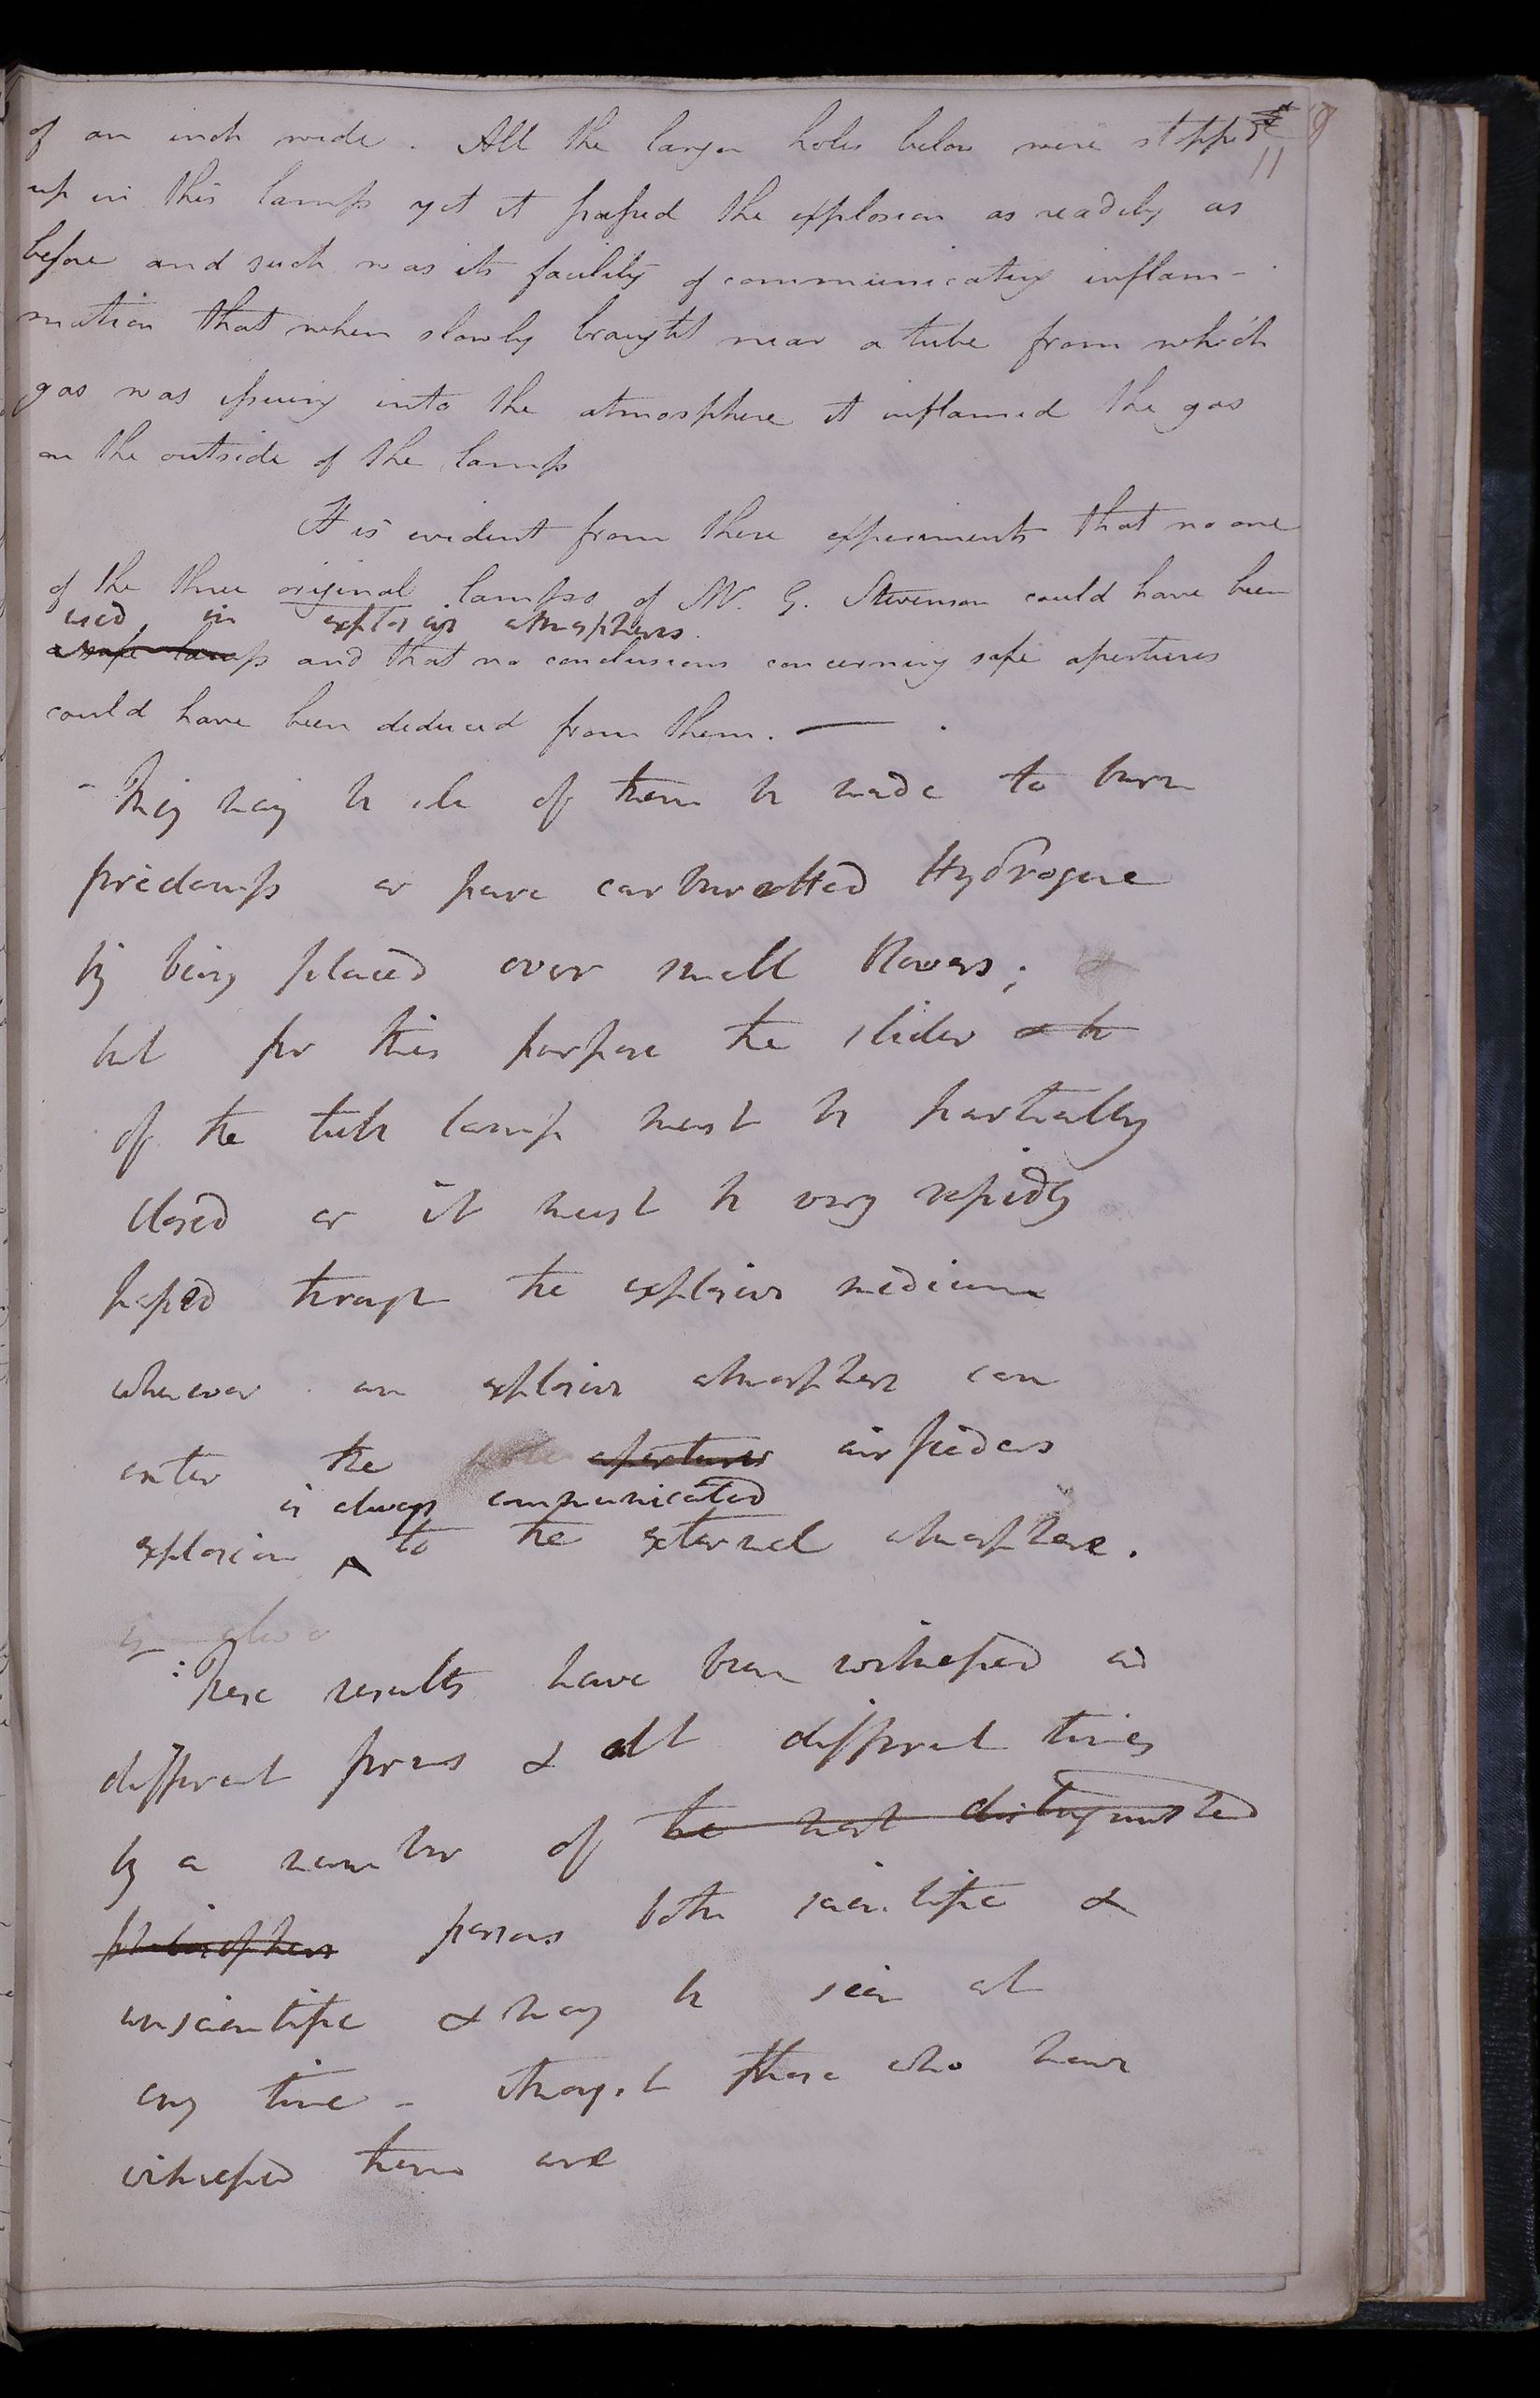 of an inch wide. All the larger holes below were stopped
11
up in this lamp yet it passed the explosion as readily as
before and such was its facility of communicating inflam-
mation that when slowly brought near a tube from which
gas was issuing into the atmosphere it inflamed the gas
on the outside of the lamp
It is evident from these experiments that no one
of the three original lamps of Mr. G. Stevenson could have been
used in explosive atmospheres
a safe lamp and that no conclusions concerning safe apertures
could have been deduced from them. —
- They may be all of them be made to burn
firedamp or pure carburetted Hydrogene
by being placed over small blowers;
but for this purpose the slider & the
of the tube lamp must be partially
closed or it must be very rapidly
passed through the explosive medium
whenever an explosive atmosphere can
enter the apertures airfeeders
is always communicated
explosion ^ to the external atmosphere.
is alwa
These results have been witnessed in
different forms & at different times
by a number of the most distinguished
philosophers persons both scientific &
unscientific & may be seen at
any time - though those who have
witnessed them are